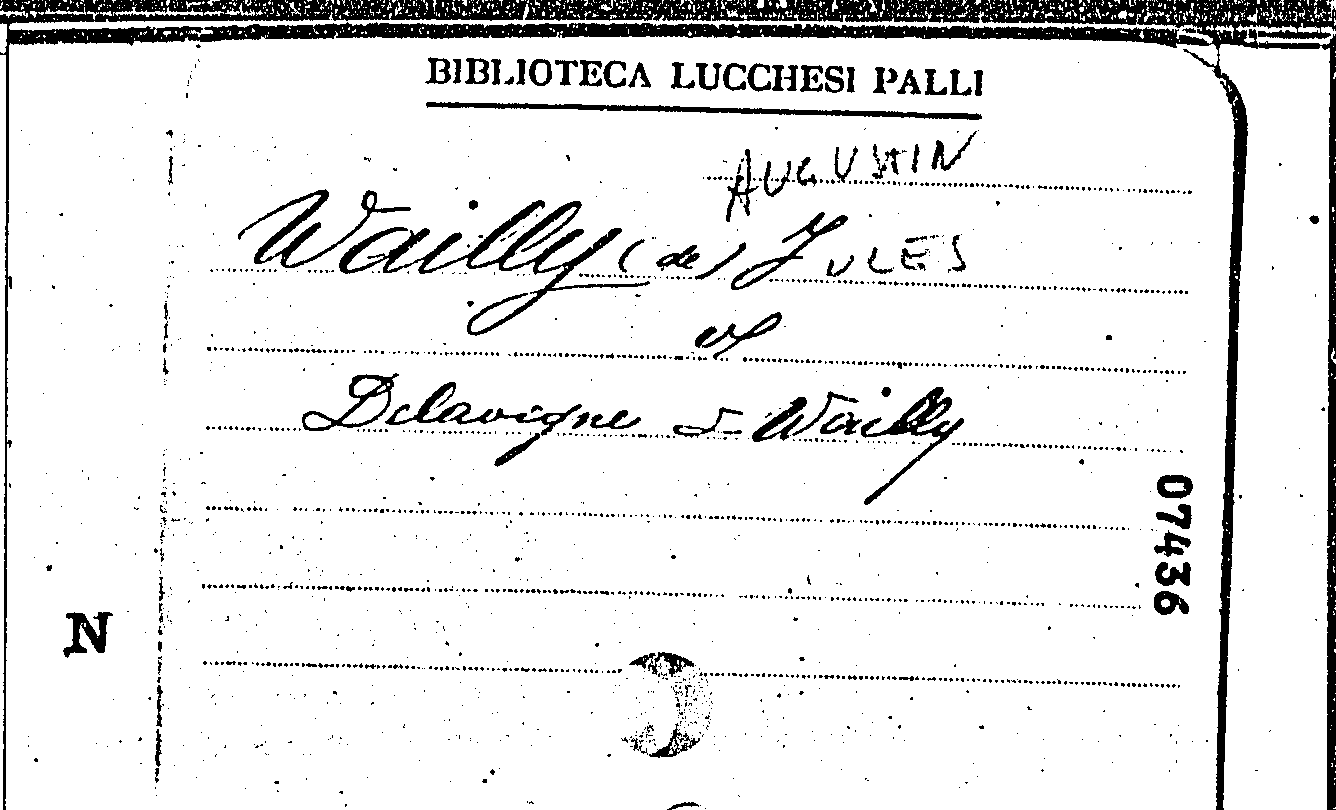 BIBLIOTECA LUCCHESI PALLI
AUGUSTIN
Wailly (de) JULES
Delavigne & Wailly
07436
N